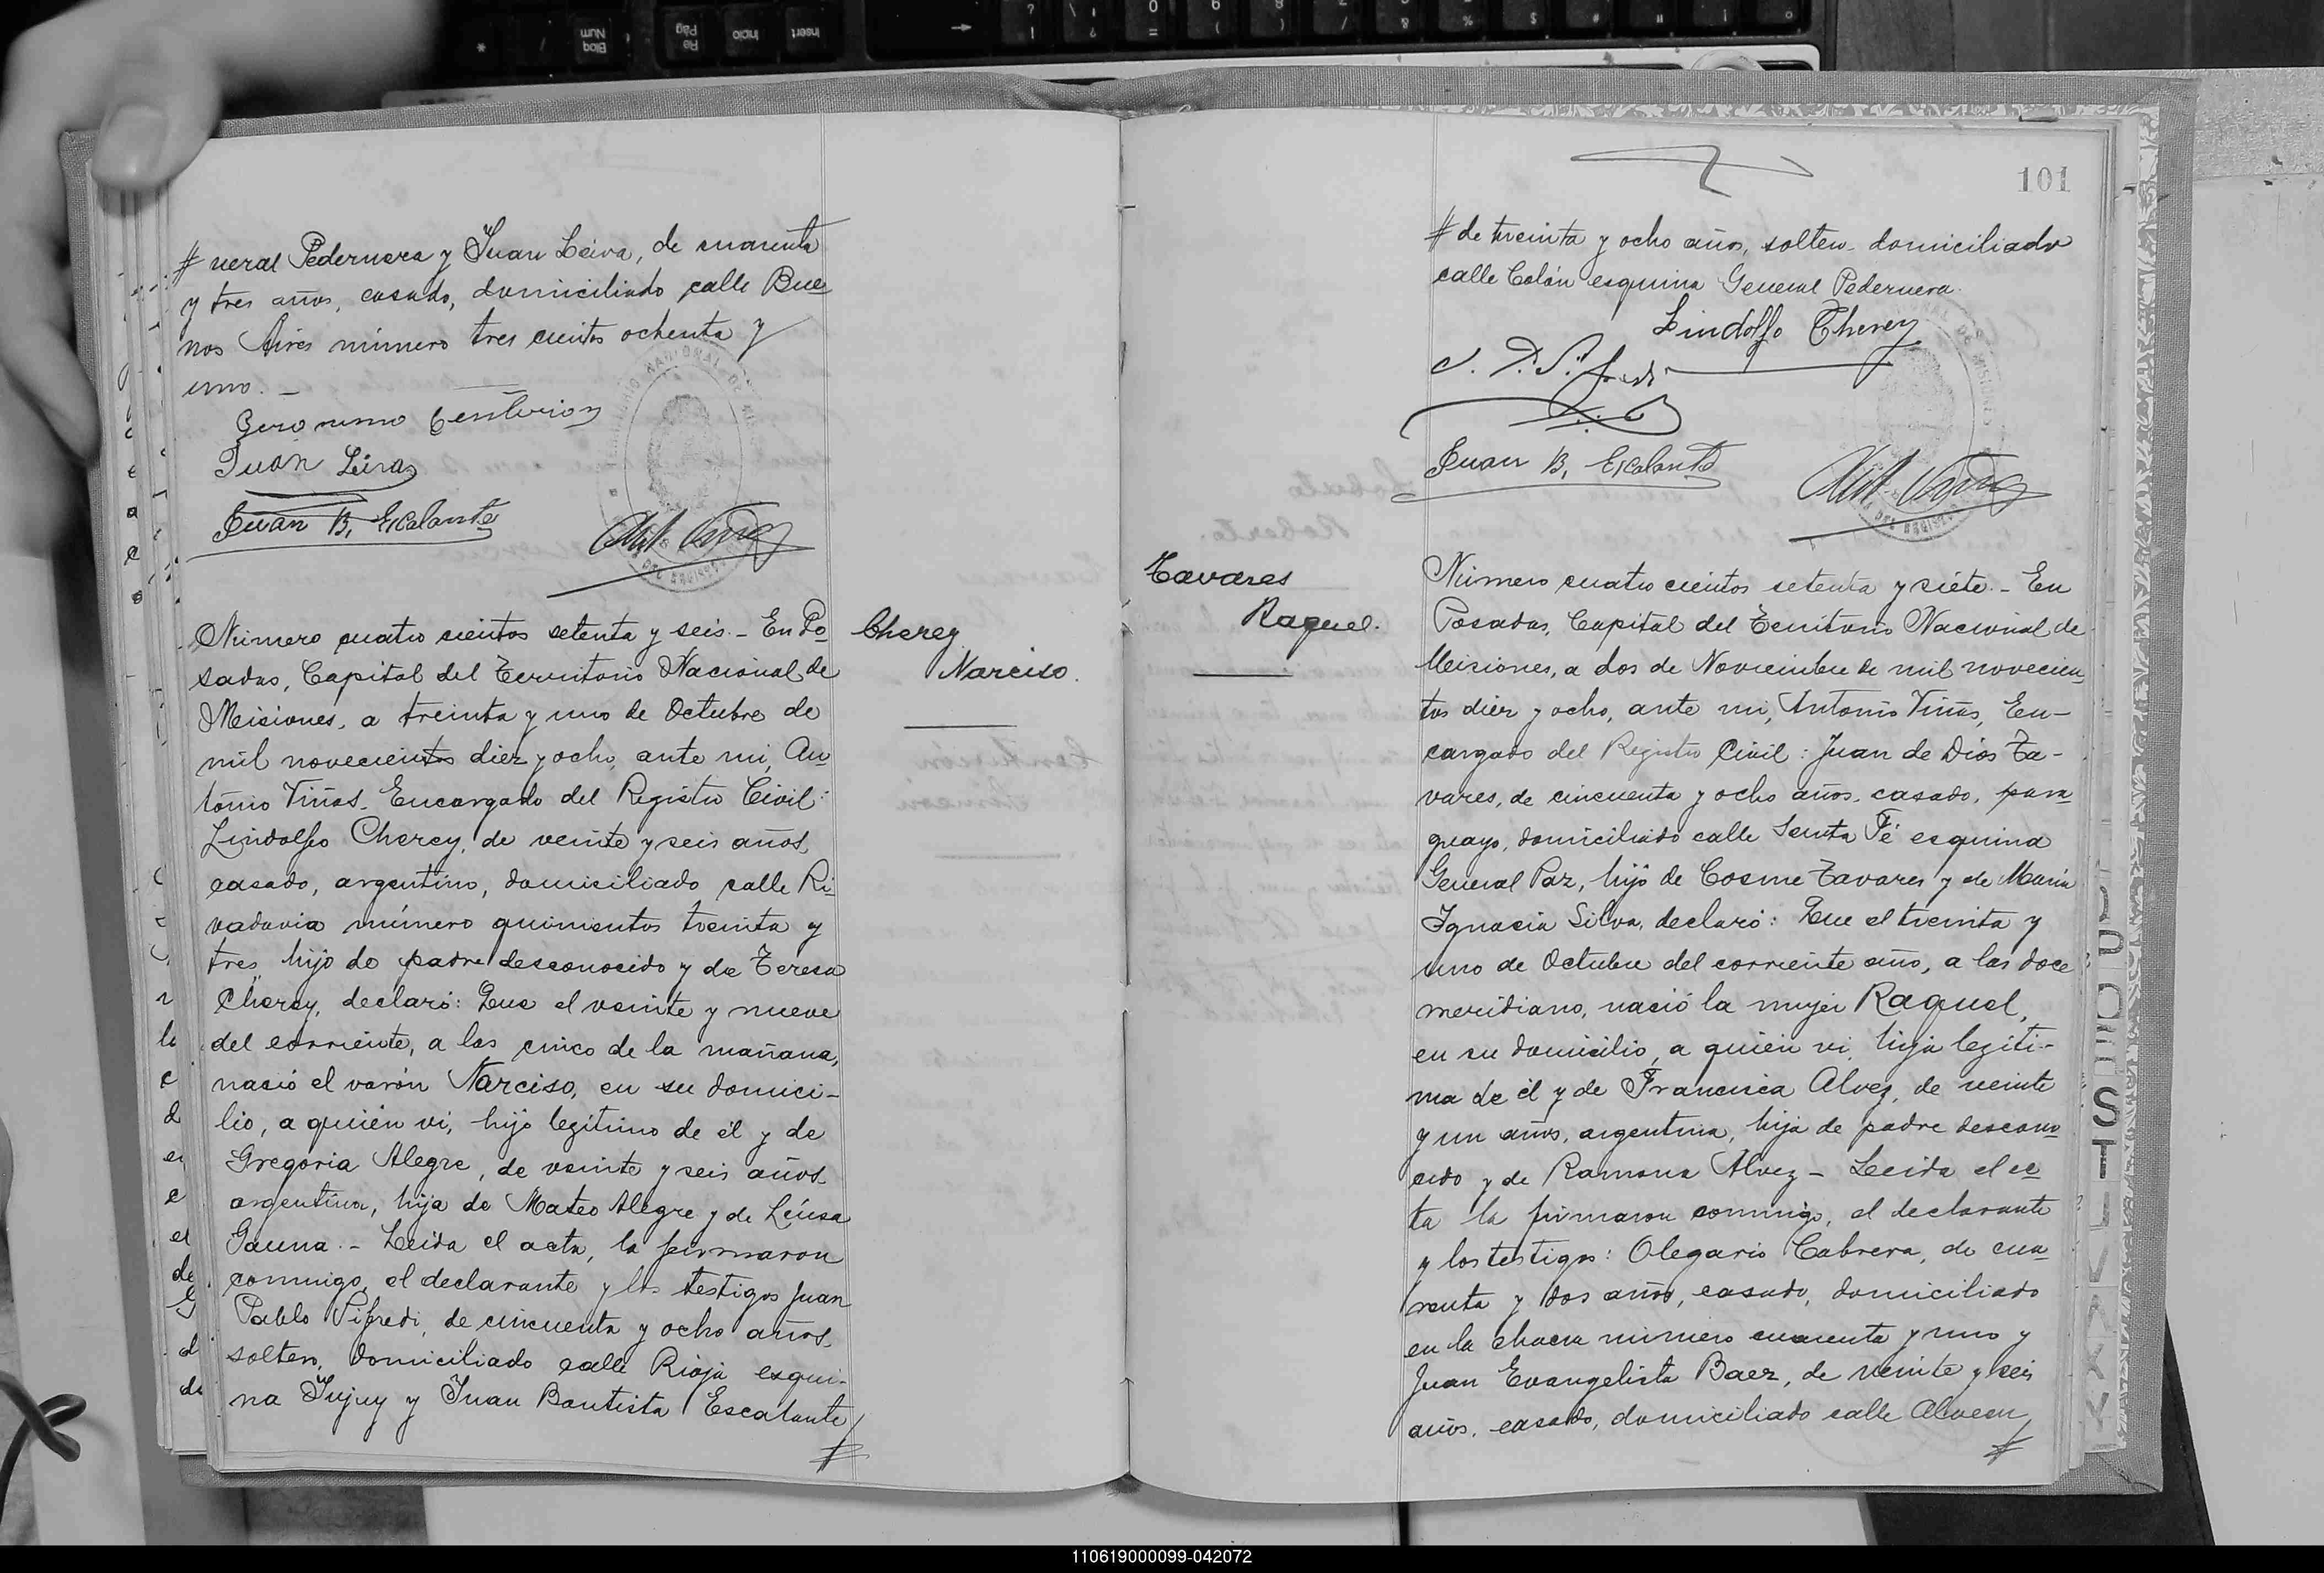 # neral Pedernera y Juan Leiva, de cuarenta
y tres años, casado, domiciliado calle Bue
nos Aires número tres cientos ochenta y
uno. —
Geronimo Centurion
Juan Leiva
Juan B. Escalante
Número cuatro cientos setenta y seis. - En Po
sadas, Capital del Territorio Nacional de
Misiones, a treinta y uno de Octubre de
mil novecientos diez y ocho, ante mi, An
tonio Viñas, Encargado del Registro Civil:
Lindolfo Cherey, de veinte y seis años,
casado, argentino, domiciliado calle Ri
vadavia número quinientos treinta y
tres, hijo de padre desconocido y de Teresa
Cherey, declaró: Que el veinte y nueve
del corriente, a las cinco de la mañana,
nació el varón Narciso, en su domici-
lio, a quién vi, hijo legitimo de él y de
Gregoria Alegre, de veinte y seis años,
argentina, hija de Mateo Alegre y de Luisa
Gauna. - Leida el acta, la firmaron
conmigo, el declarante y los testigos Juan
Pablo Pifredi, de cincuenta y ocho años,
soltero, domiciliado calle Rioja esqui-
na Jujuy y Juan Bautista Escalante
#
Cherey
Narciso.
101
# de treinta y ocho años, soltero, domiciliado
calle Colón esquina General Pedernera.
Lindolfo Cherey
Juan B. Escalante
Tavares
Raquel.
Número cuatro cientos setenta y siete. - En
Posadas, Capital del Territorio Nacional de
Misiones, a dos de Noviembre de mil novecien
tos diez y ocho, ante mi, Antonio Viñas, En-
cargado del Registro Civil: Juan de Dios Ta-
vares, de cincuenta y ocho años, casado, para
guayo, domiciliado calle Santa Fé esquina
General Paz, hijo de Cosme Tavares y de Maria
Ignacia Silva, declaró: Que el treinta y
uno de Octubre del corriente año, a las doce
meridiano, nació la mujer Raquel,
en su domicilio, a quién vi, hija legiti-
ma de él y de Francisca Alvez, de veinte
y un años, argentina, hija de padre descono
cido y de Ramona Alvez - Leida el ac
ta la firmaron conmigo, el declarante
y los testigos: Olegario Cabrera, de cua
renta y dos años, casado, domiciliado
en la chacra número cuarenta y uno y
Juan Evangelista Baez, de veinte y seis
años, casado, domiciliado calle
#
110619000099-042072